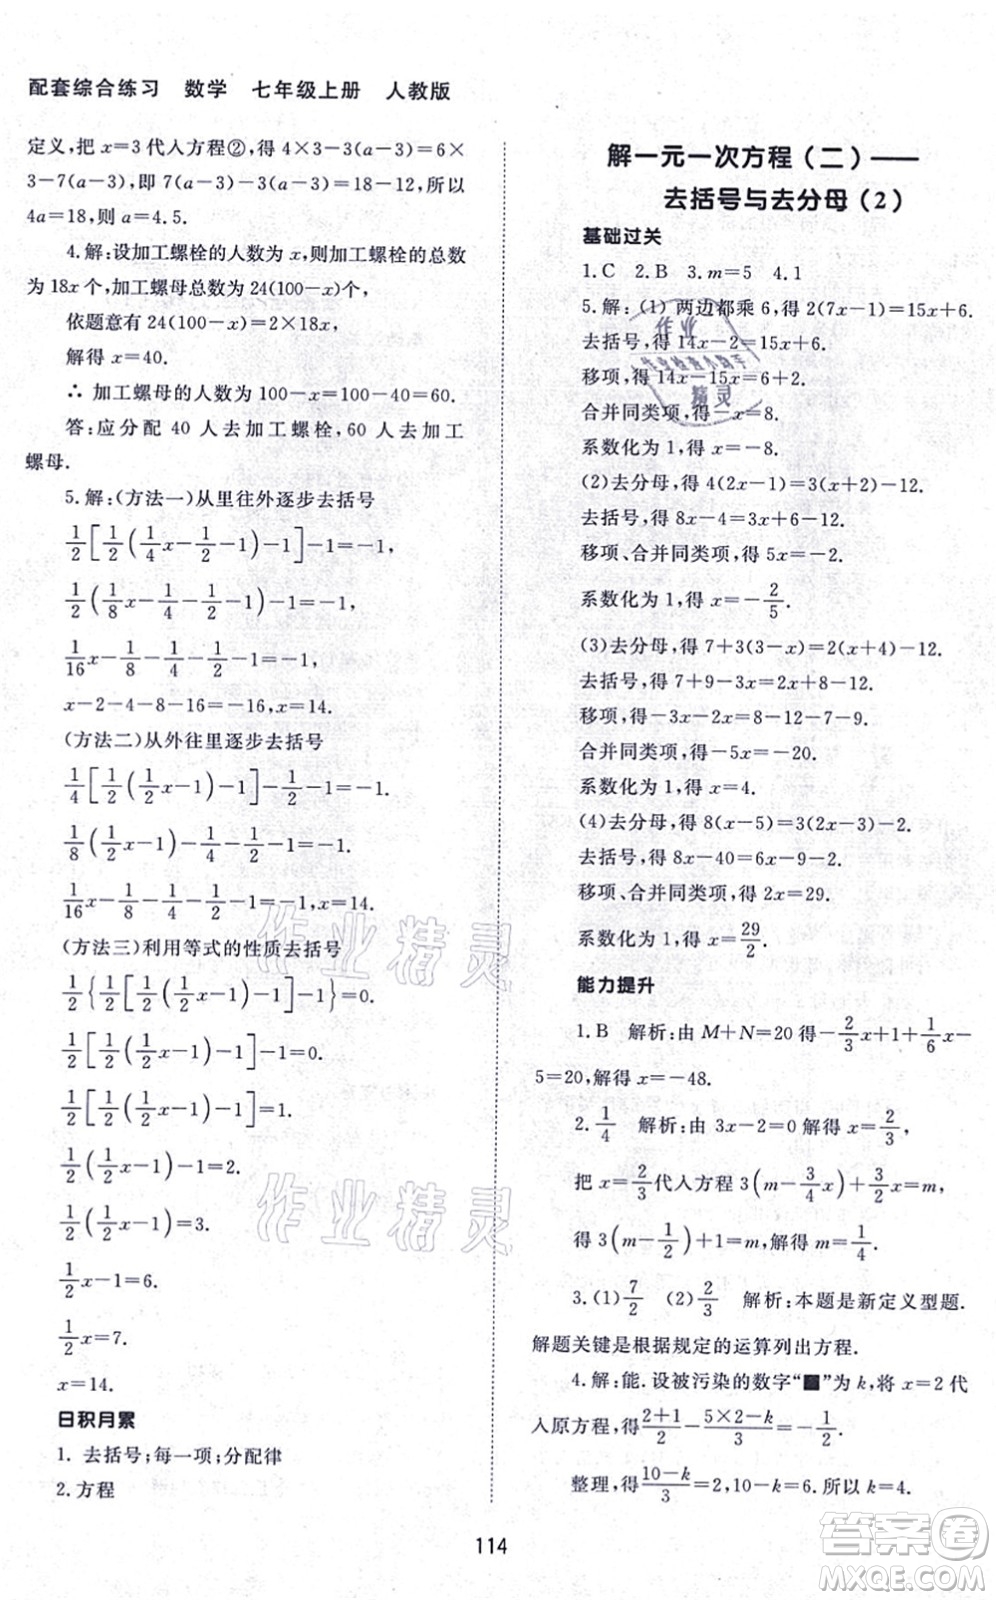 配套综合练习 数学 七年级上册 人教版
定义,把 x=3 代入方程②,得 4×3-3(a-3)=6×
3-7(a-3),即 7(a-3)-3(a-3)=18-12,所以
4a=18,则 a=4.5.
4.解:设加工螺栓的人数为 x,则加工螺栓的总数
为 18x 个,加工螺母总数为 24(100-x)个,
依题意有 24(100-x)=2×18x,
解得 x=40.
∴ 加工螺母的人数为 100-x=100-40=60.
答:应分配 40 人去加工螺栓,60 人去加工
螺母.
5.解:(方法一)从里往外逐步去括号
1/2[1/2(1/4x-1/2-1)-1]-1=-1,
1/2(1/8x-1/4-1/2-1)-1=-1,
1/16x-1/8-1/4-1/2-1=-1,
x-2-4-8-16=-16,x=14.
(方法二)从外往里逐步去括号
1/4[1/2(1/2x-1)-1]-1/2-1=-1.
1/8(1/2x-1)-1/4-1/2-1=-1.
1/16x-1/8-1/4-1/2-1=-1,x=14.
(方法三)利用等式的性质去括号
1/2{1/2[1/2(1/2x-1)-1]-1}=0.
1/2[1/2(1/2x-1)-1]-1=0.
1/2[1/2(1/2x-1)-1]=1.
1/2(1/2x-1)-1=2.
1/2(1/2x-1)=3.
1/2x-1=6.
1/2x=7.
x=14.
日积月累
1. 去括号;每一项;分配律
2.方程
解一元一次方程(二)——
去括号与去分母(2)
基础过关
1.C 2.B 3.m=5 4.1
5.解:(1) 两边都乘 6,得 2(7x-1)=15x+6.
去括号,得 14x-2=15x+6.
移项,得 14x-15x=6+2.
合并同类项,得-x=8.
系数化为 1,得 x=-8.
(2)去分母,得 4(2x-1)=3(x+2)-12.
去括号,得 8x-4=3x+6-12.
移项、合并同类项,得 5x=-2.
系数化为 1,得 x=-2/5.
(3)去分母,得 7+3(3-x)=2(x+4)-12.
去括号,得 7+9-3x=2x+8-12.
移项,得-3x-2x=8-12-7-9.
合并同类项,得-5x=-20.
系数化为 1,得 x=4.
(4)去分母,得 8(x-5)=3(2x-3)-2.
去括号,得 8x-40=6x-9-2.
移项、合并同类项,得 2x=29.
系数化为 1,得 x=29/2.
能力提升
1.B 解析:由 M+N=20 得-2/3x+1+1/6x-
5=20,解得 x=-48.
2.1/4 解析:由 3x-2=0 解得 x=2/3,
把 x=2/3代入方程 3(m-3/4x)+3/2x=m,
得 3(m-1/2)+1=m,解得 m=1/4.
3.(1)7/2 (2)2/3 解析:本题是新定义型题.
解题关键是根据规定的运算列出方程.
4.解:能.设被污染的数字“■”为 k,将 x=2 代
入原方程,得(2+1)/2-(5×2-k)/3=-1/2.
整理,得(10-k)/3=2,10-k=6.所以 k=4.
114
作业精灵
作业检查小助手
作业精灵
作业精灵
答案圈
MXQE.COM